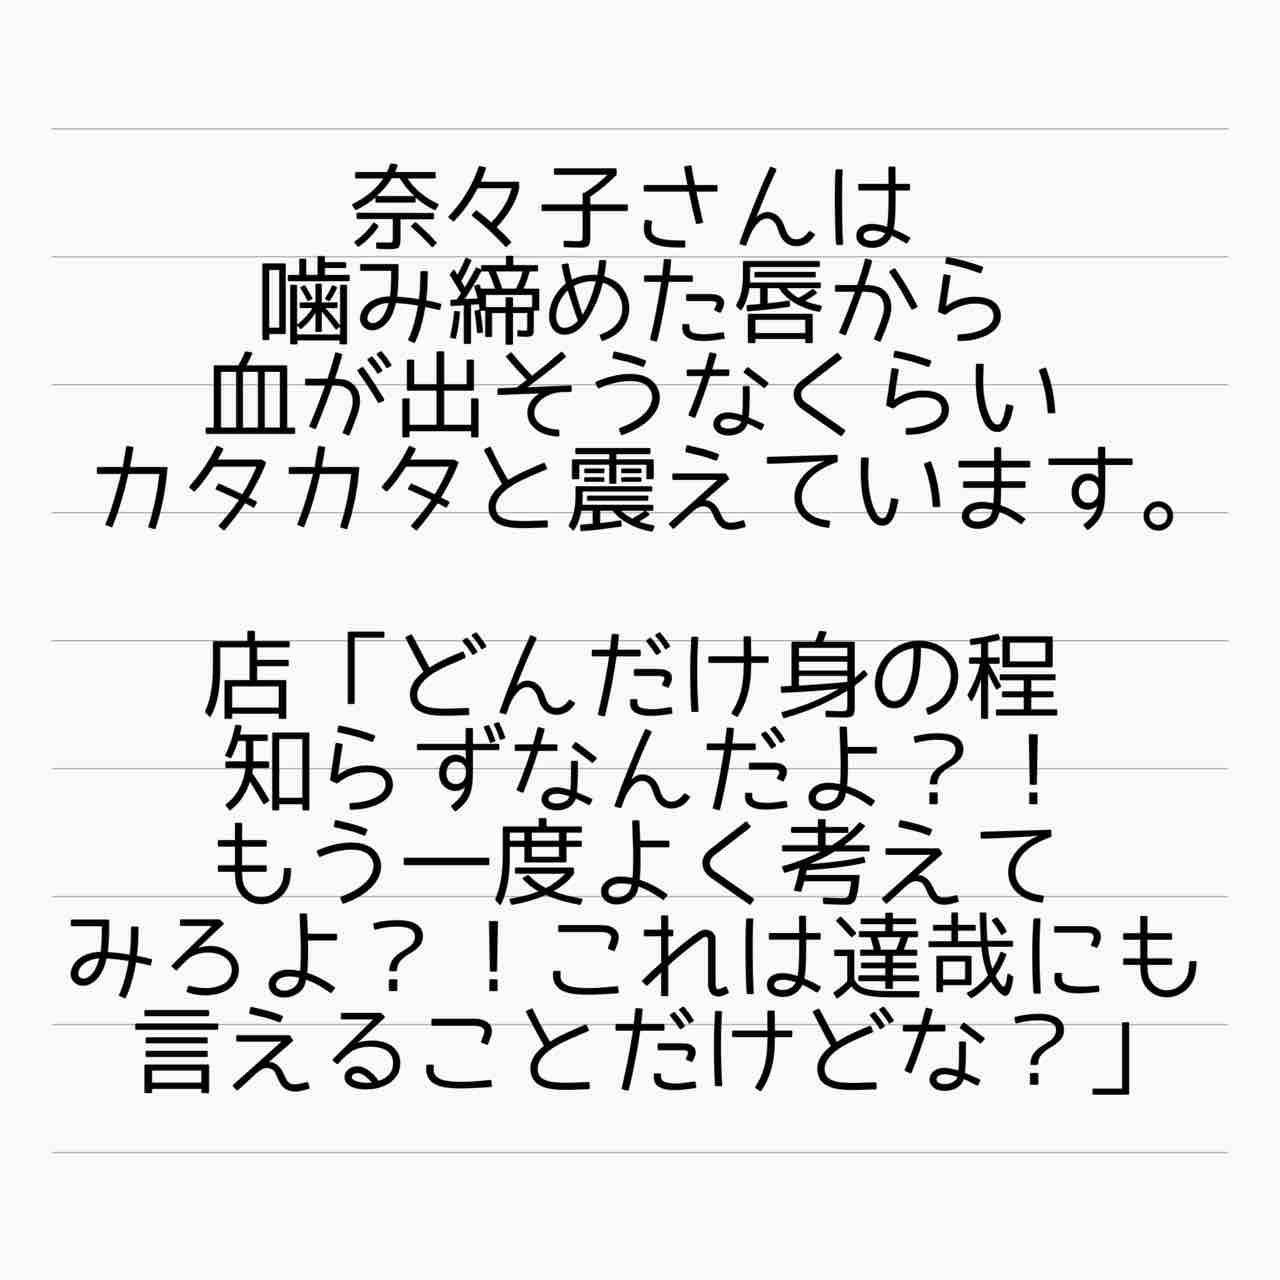 奈々子さんは
噛み締めた唇から
血が出そうなくらい
カタカタと震えています。
店「どんだけ身の程
知らずなんだよ？！
もう一度よく考えて
みろよ？！これは達哉にも
言えることだけどな？」